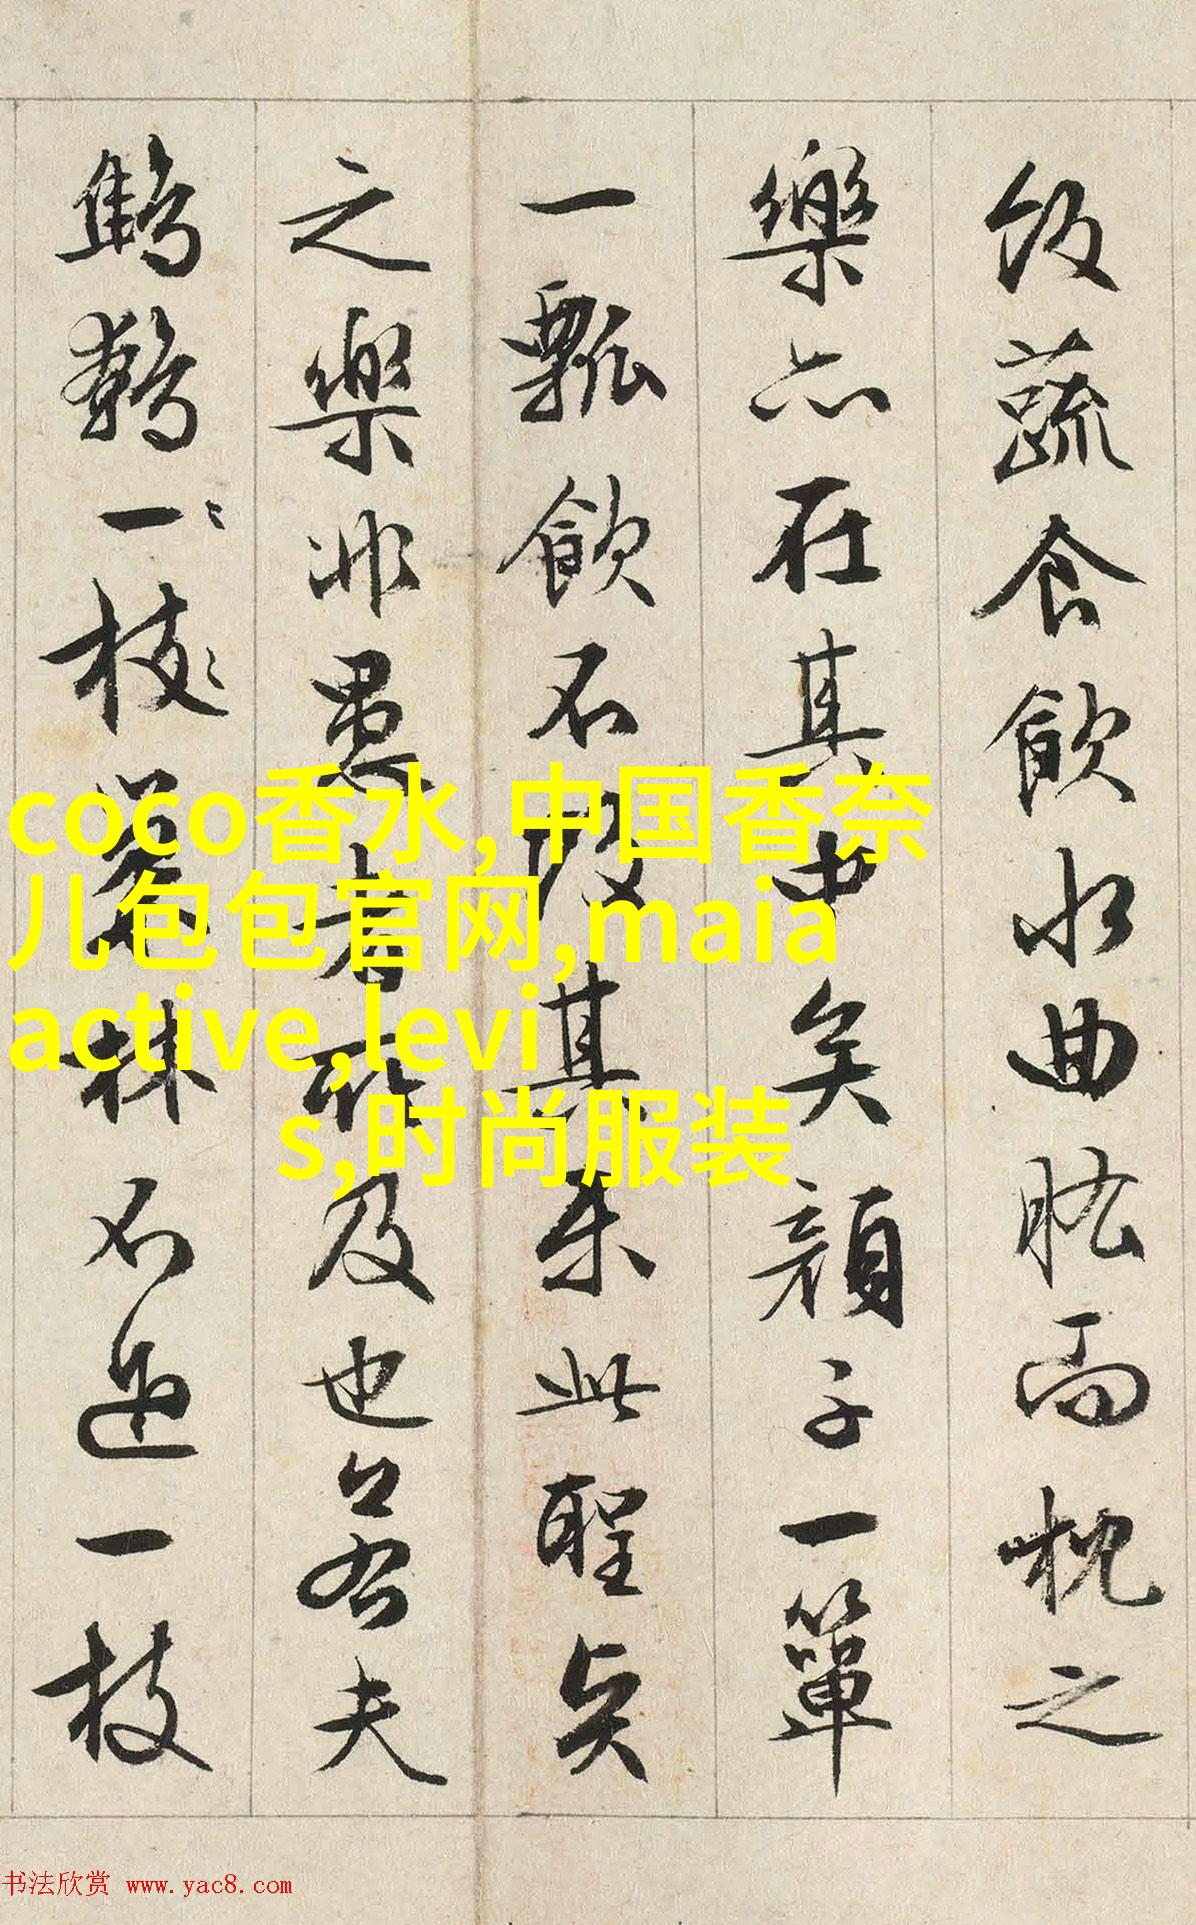 飯蔬食飲水曲肱而枕之
樂亦在其中矣顏子一簞
一瓢飲不改其樂此聖賢
之樂非愚者所及也若夫
鷦鷯一枝巢林不過一枝
coco香水,中国香奈
儿包包官网,maia
active,levi
s,时尚服装
书法欣赏 www.yac8.com